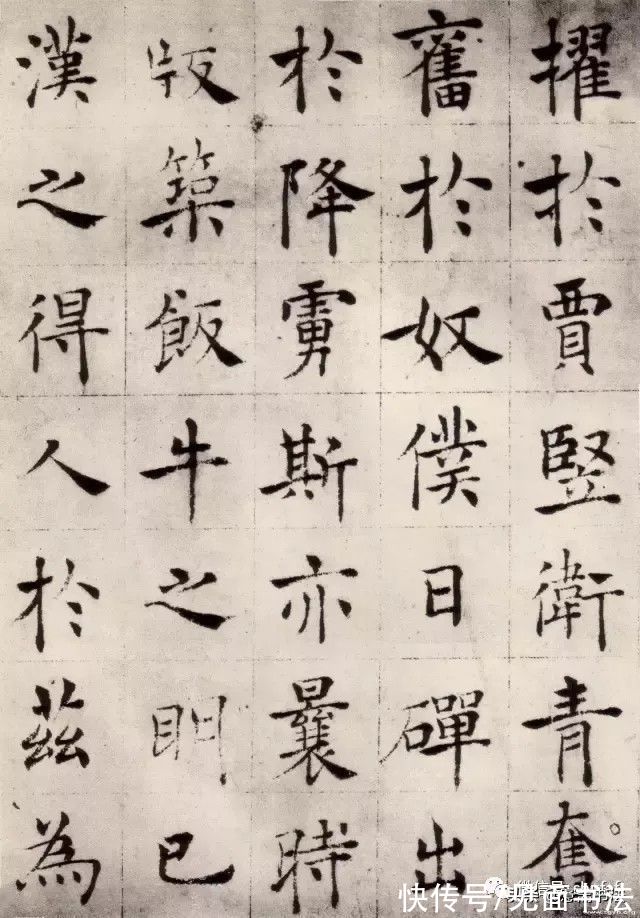 擢於賈竪衛青奮
奮於奴僕日磾出
於降虜斯亦曩時
版築飯牛之明已
漢之得人於茲為
快传号/见面书法